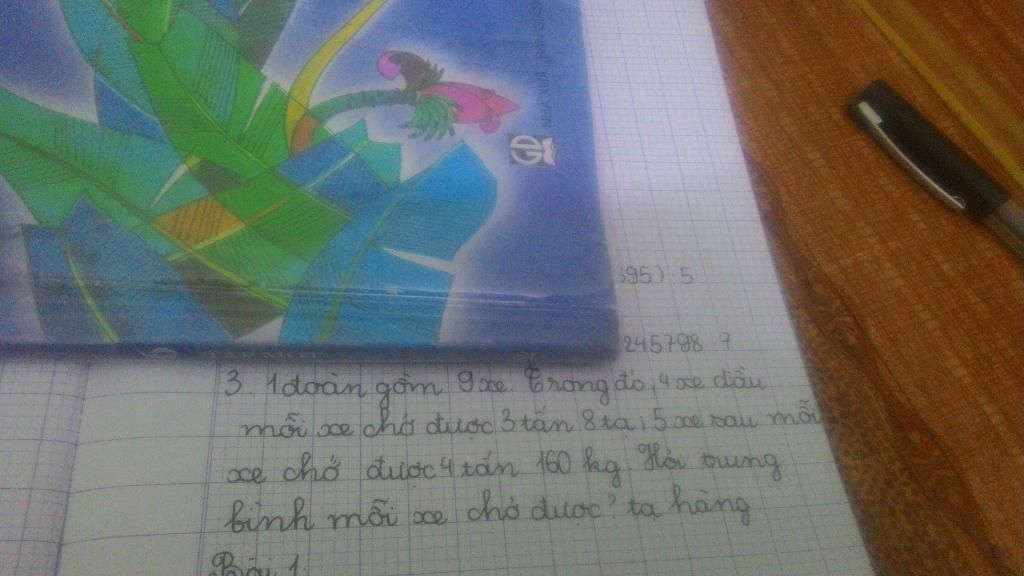 NHÀ XUẤT
395) : 5
245798 : 7
TẬP MỘT
3. 1 đoàn gồm 9 xe. Trong đó, 4 xe đầu
mỗi xe chở được 3 tấn 8 tạ; 5 xe sau mỗi
xe chở được 4 tấn 160 kg. Hỏi trung
bình mỗi xe chở được ? tạ hàng
Bài 1: